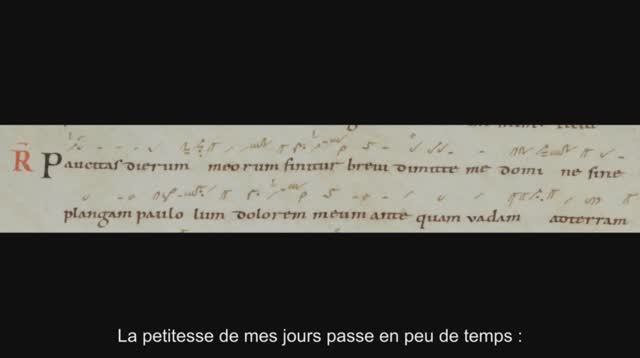 R Paucitas dierum meorum finitur brevi dimitte me domi ne sine
plangam paulo lum dolorem meum ante quam vadam adterram
La petitesse de mes jours passe en peu de temps :